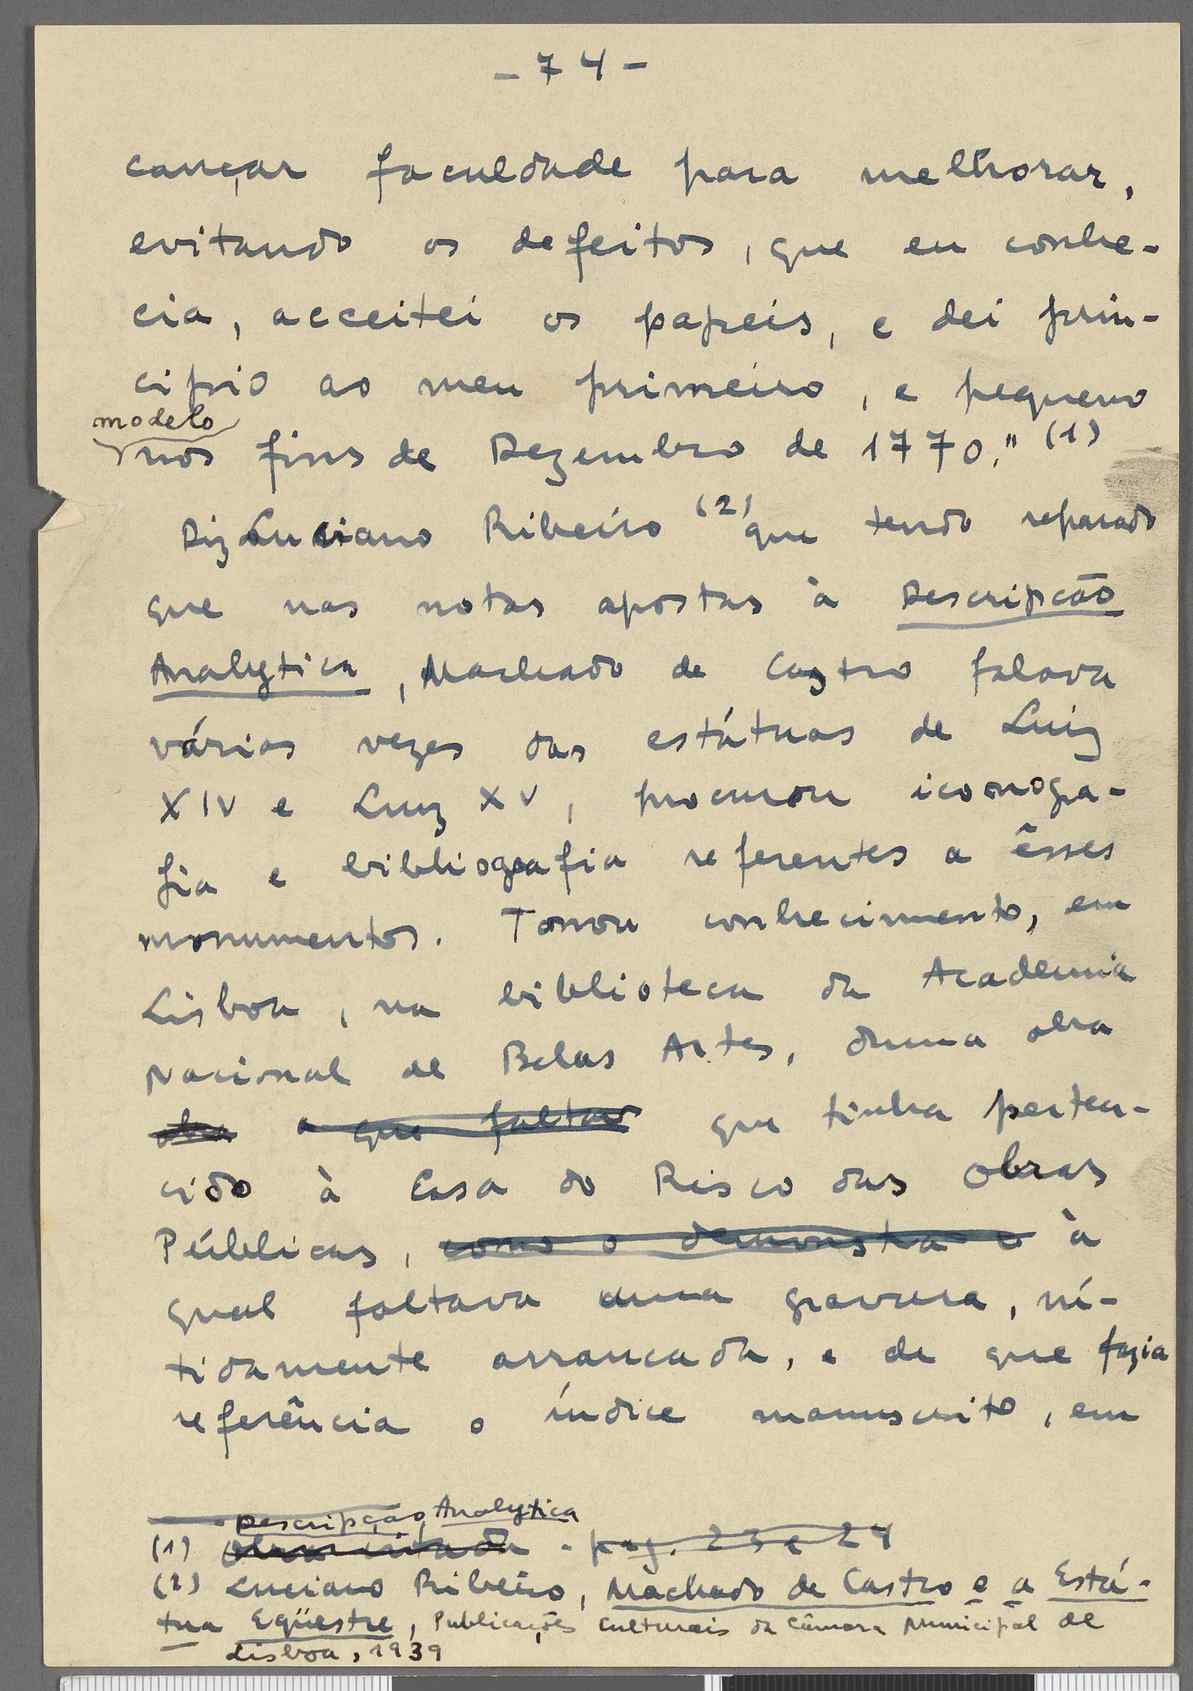 - 74 -
cançar faculdade para melhorar,
evitando os defeitos, que eu conhe-
cia, acceitei os papeis, e dei prin-
cipio ao meu primeiro, e pequeno
modelo
nos fins de Dezembro de 1770." (1)
Diz Luciano Ribeiro (2) que tendo reparado
que nas notas apostas à Descripção
Analytica, Machado de Castro falava
várias vezes das estátuas de Luiz
XIV e Luiz XV, procurou iconogra-
fia e bibliografia referentes a êsses
monumentos. Tomou conhecimento, em
Lisboa, na biblioteca da Academia
Nacional de Belas Artes, duma obra
obra a que faltar que tinha perten-
cido à Casa do Risco das Obras
Públicas, como o demonstra o à
qual faltava uma gravura, ni-
tidamente arrancada, e de que fazia
referência o índice manuscrito, em
Descripção Analytica
(1) Obra citada - pag. 23 e 24
(2) Luciano Ribeiro, Machado de Castro e a Está-
tua Eqüestre, Publicações Culturais da Câmara Municipal de
Lisboa, 1939